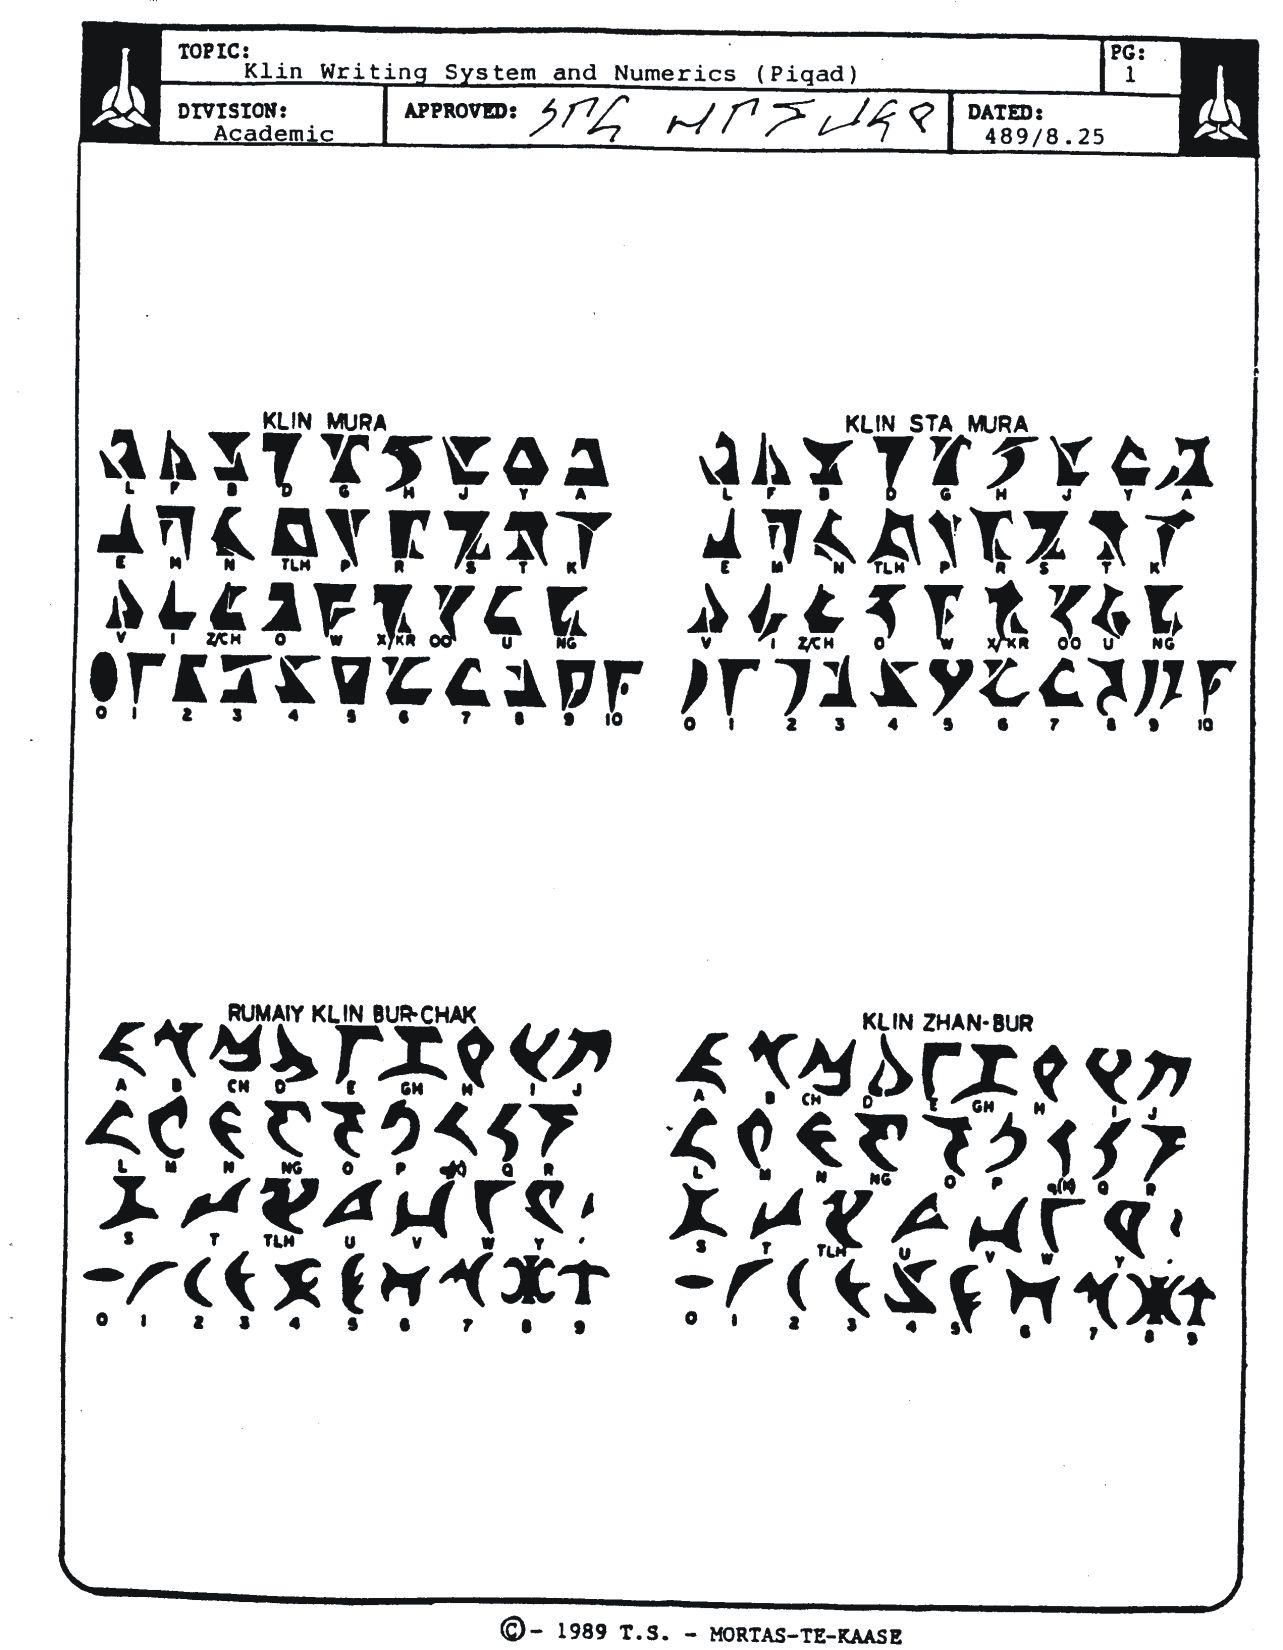 TOPIC:
Klin Writing System and Numerics (Piqad)
PG:
1
DIVISION:
Academic
APPROVED:
DATED:
489/8.25
KLIN MURA
L F B D G H J Y A
E M N TLH P R S T K
V I Z/CH O W X/KR OO U NG
0 1 2 3 4 5 6 7 8 9 10
KLIN STA MURA
L F B D G H J Y A
E M N TLH P R S T K
V I Z/CH O W X/KR OO U NG
0 1 2 3 4 5 6 7 8 9 10
RUMAIY KLIN BUR-CHAK
A B CH D E GH H I J
L M N NG O P q(K) Q R
S T TLH U V W Y '
0 1 2 3 4 5 6 7 8 9
KLIN ZHAN-BUR
A B CH D E GH H I J
L M N NG O P q(K) Q R
S T TLH U V W Y '
0 1 2 3 4 5 6 7 8 9
©- 1989 T.S. - MORTAS-TE-KAASE